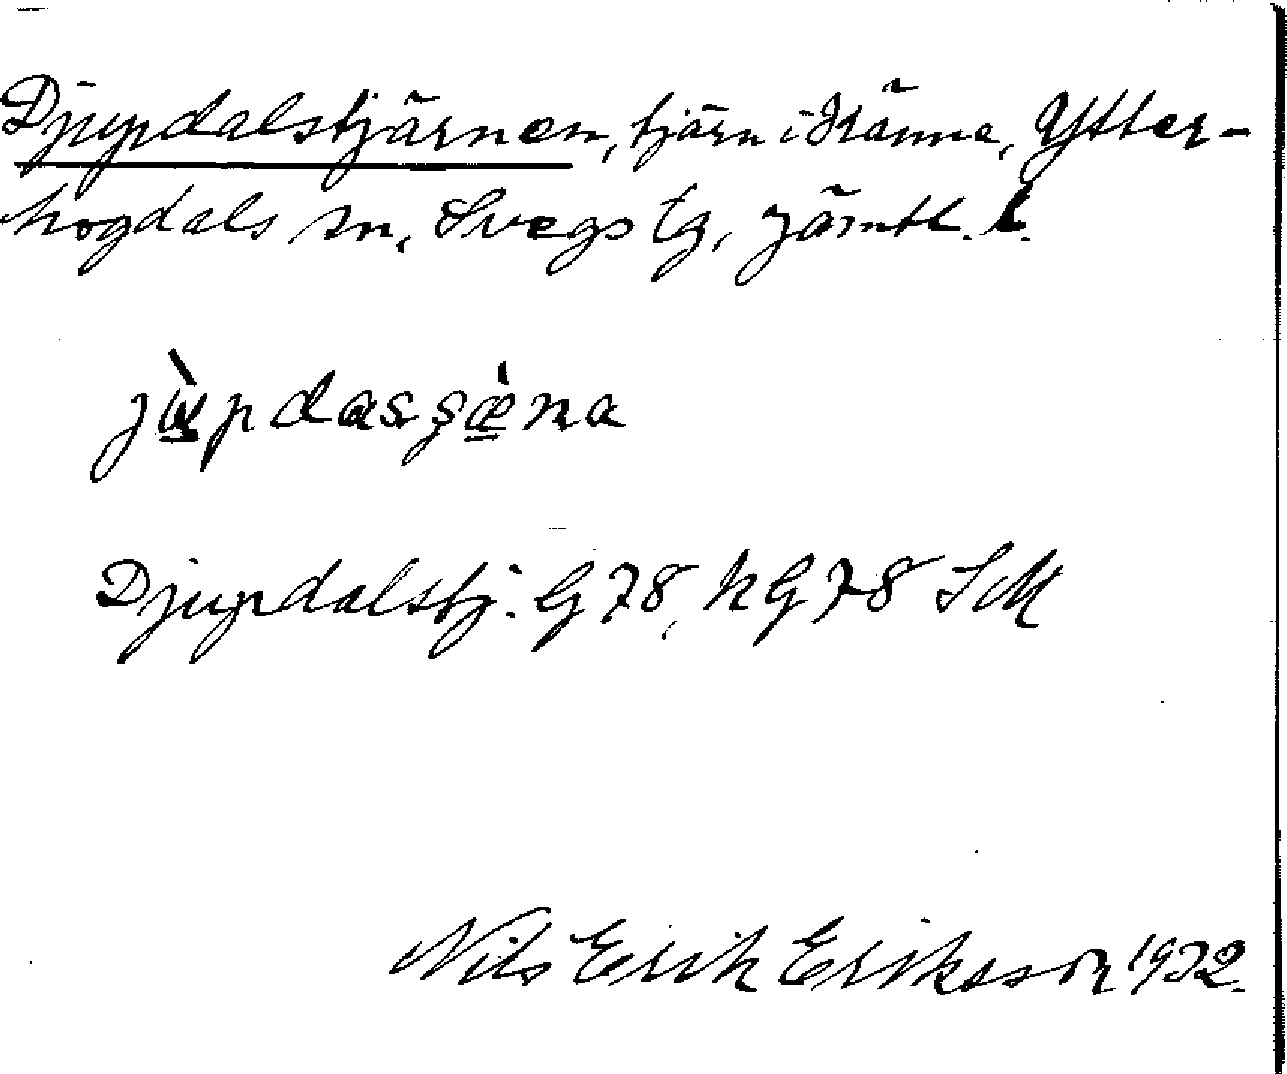 Djupdalstjärnen, tjärn i Ränna, Ytter-
hogdals sn, Svegs tg, Jämtl. l.
Djupdalstj. G 78, NG 78 SM
Nils Erik Eriksson 1932.